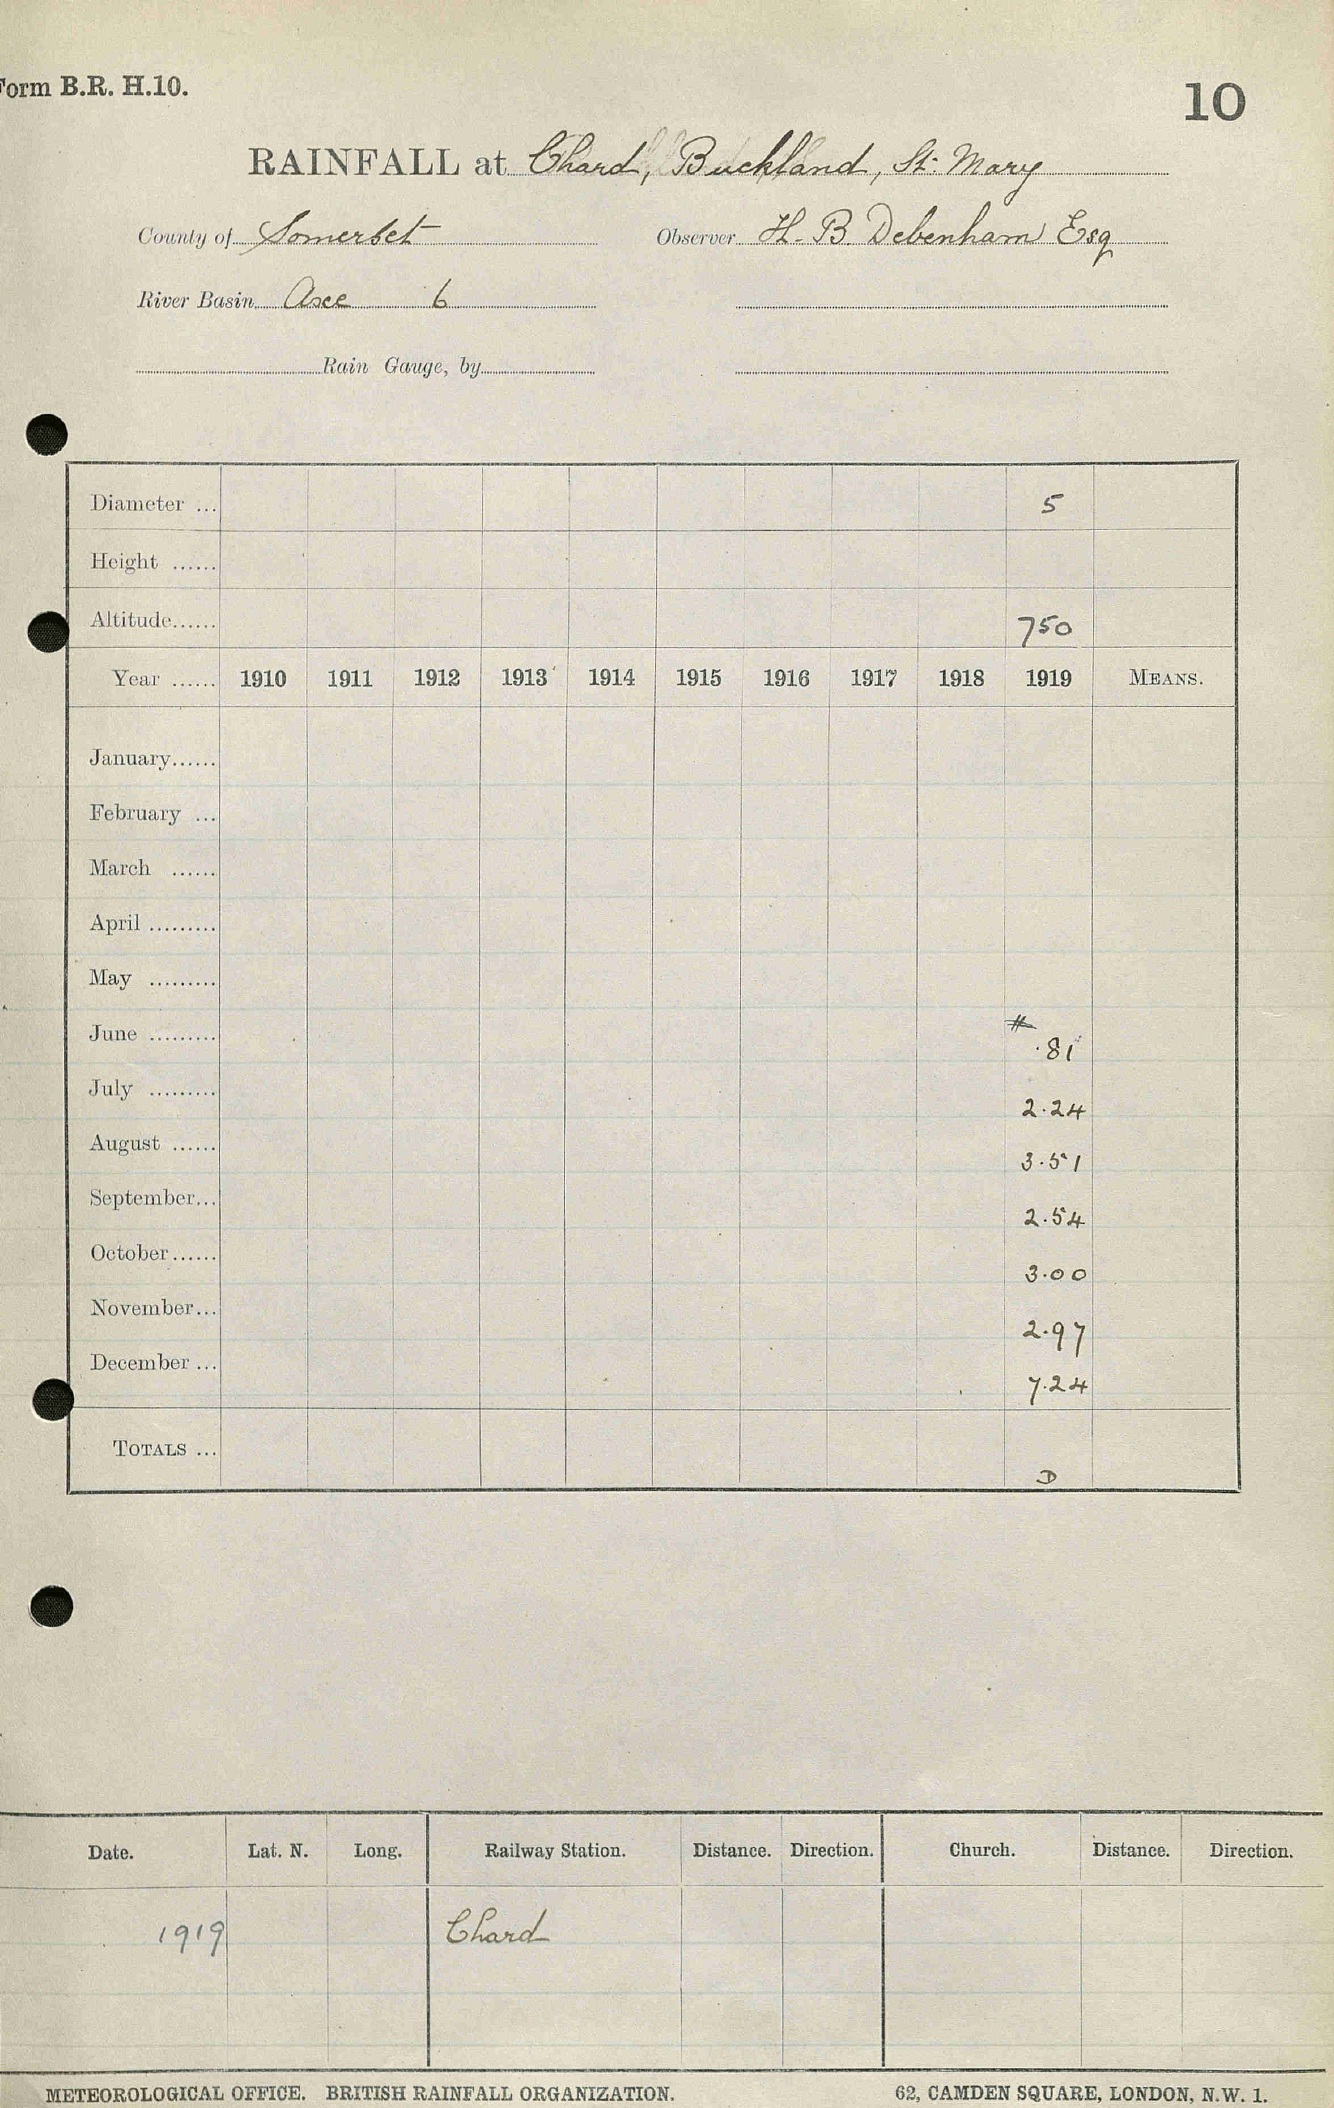 Form B.R. H.10.
10
RAINFALL at Chard, Buckland, St. Mary
County of Somerset Observer H. B. Debenham Esq
River Basin Axe 6
Rain Gauge, by
Diameter ... 5
Height ......
Altitude...... 750
Year ...... 1910 1911 1912 1913 1914 1915 1916 1917 1918 1919 MEANS.
January......
February ...
March ......
April .........
May .........
June ......... # .81
July ......... 2.24
August ...... 3.51
September... 2.54
October...... 3.00
November... 2.97
December ... 7.24
TOTALS ... D
Date. Lat. N. Long. Railway Station. Distance. Direction. Church. Distance. Direction.
1919 Chard
METEOROLOGICAL OFFICE. BRITISH RAINFALL ORGANIZATION. 62, CAMDEN SQUARE, LONDON, N.W. 1.